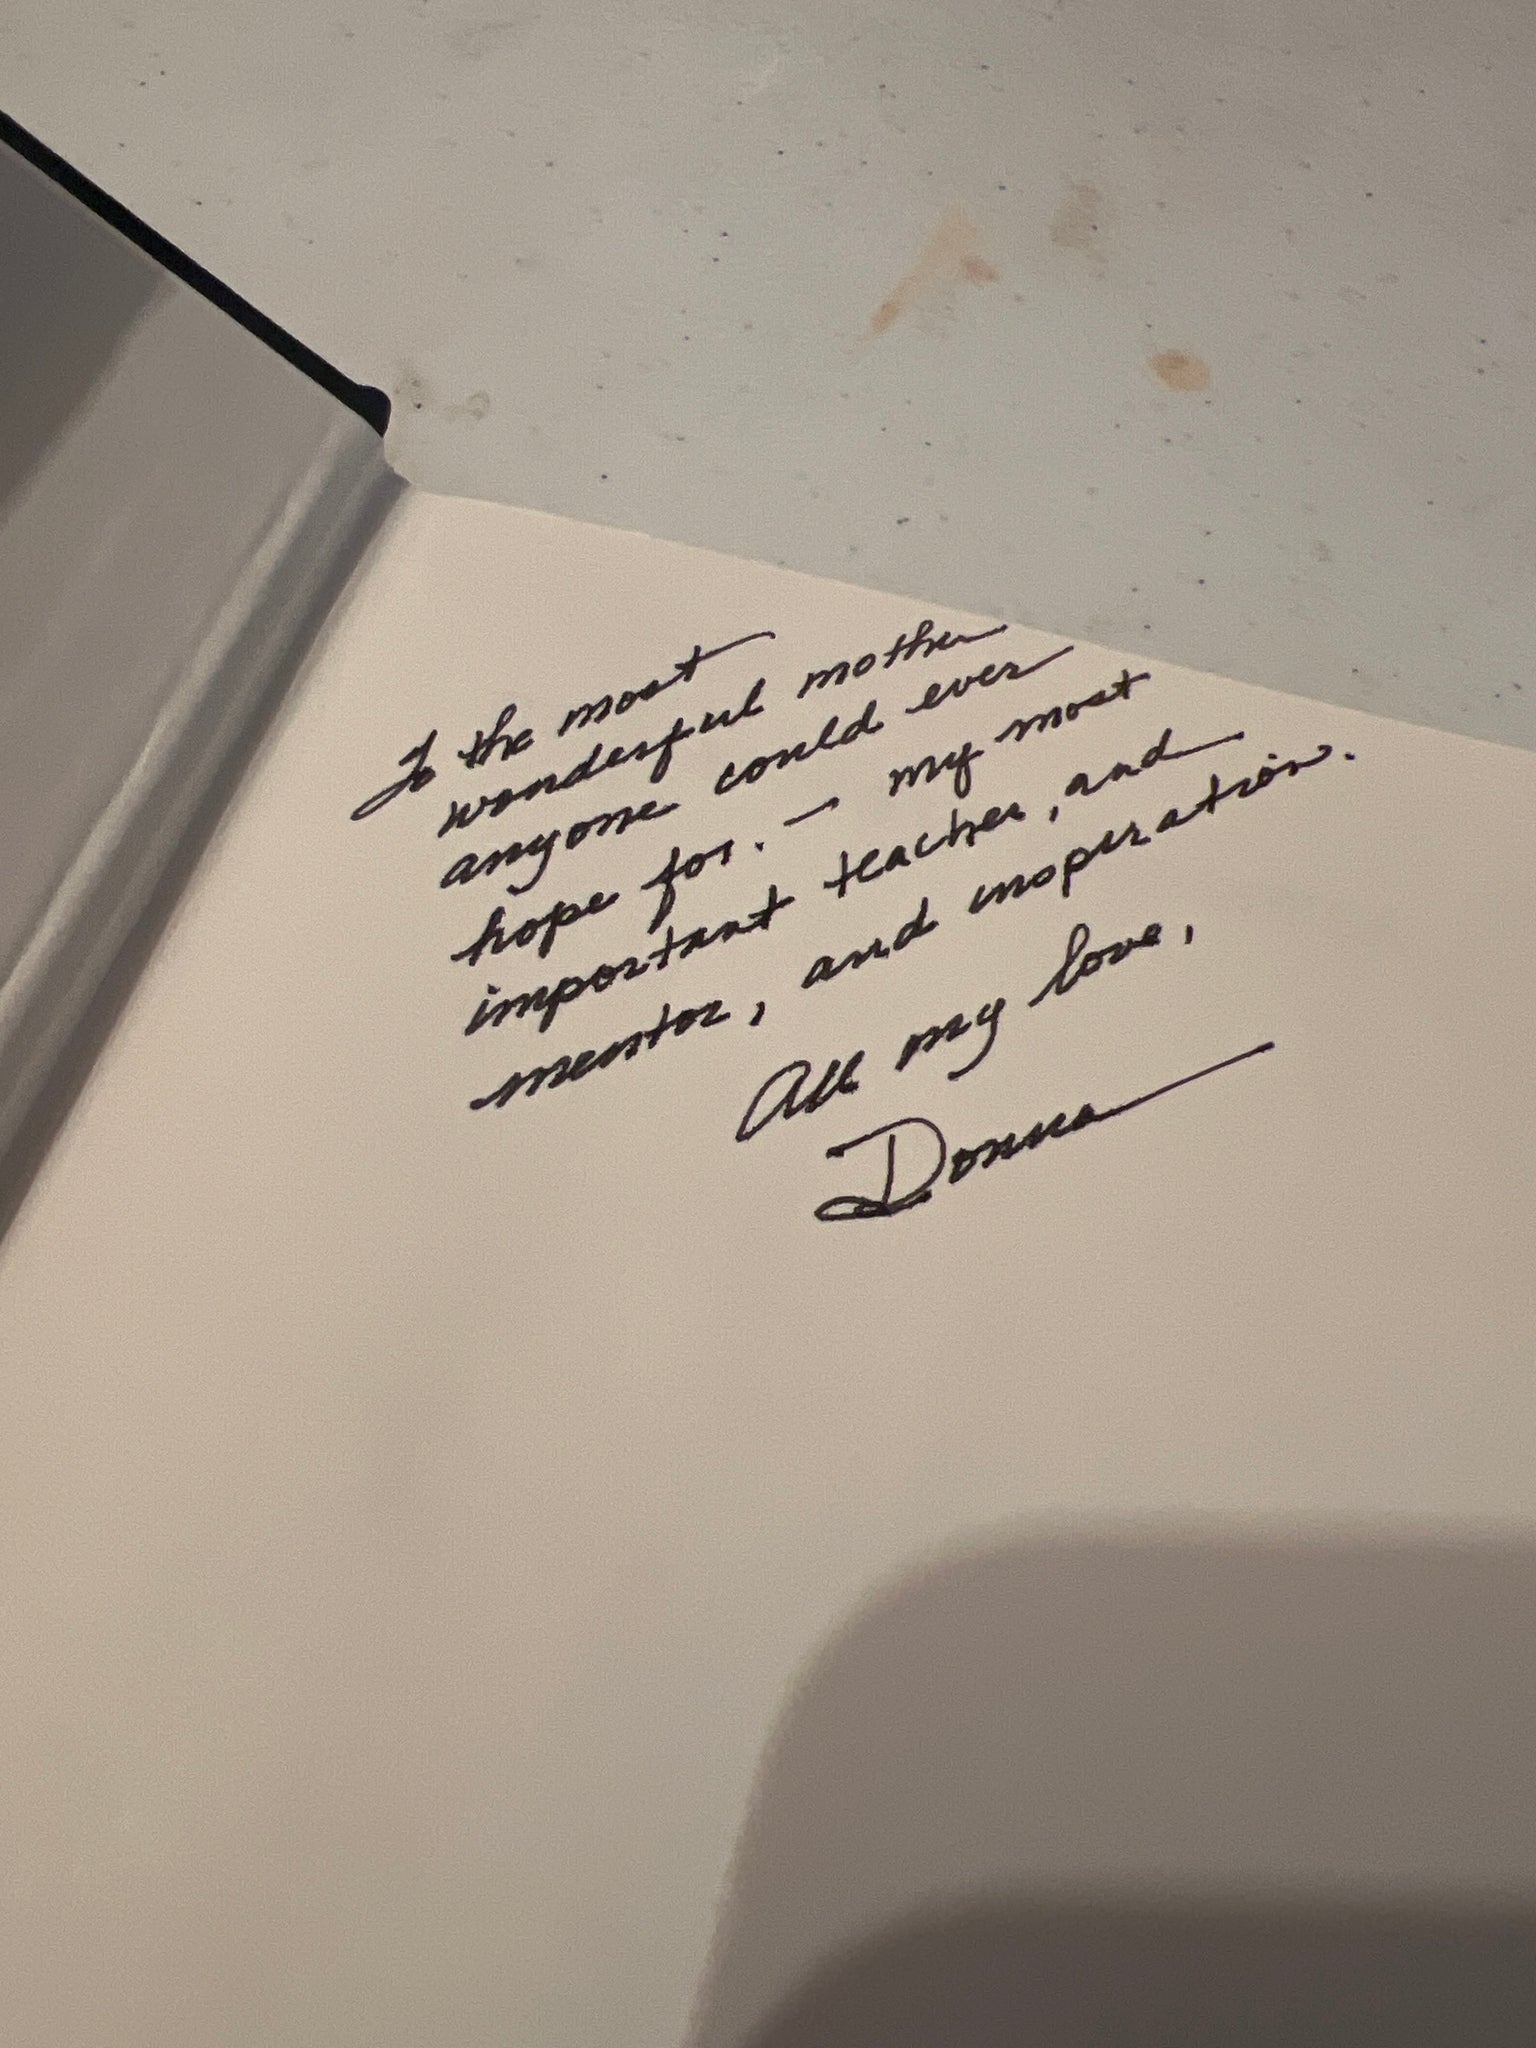 To the most
wonderful mother
anyone could ever
hope for. — my most
important teacher, and
mentor, and inspiration.
All my love,
Donna